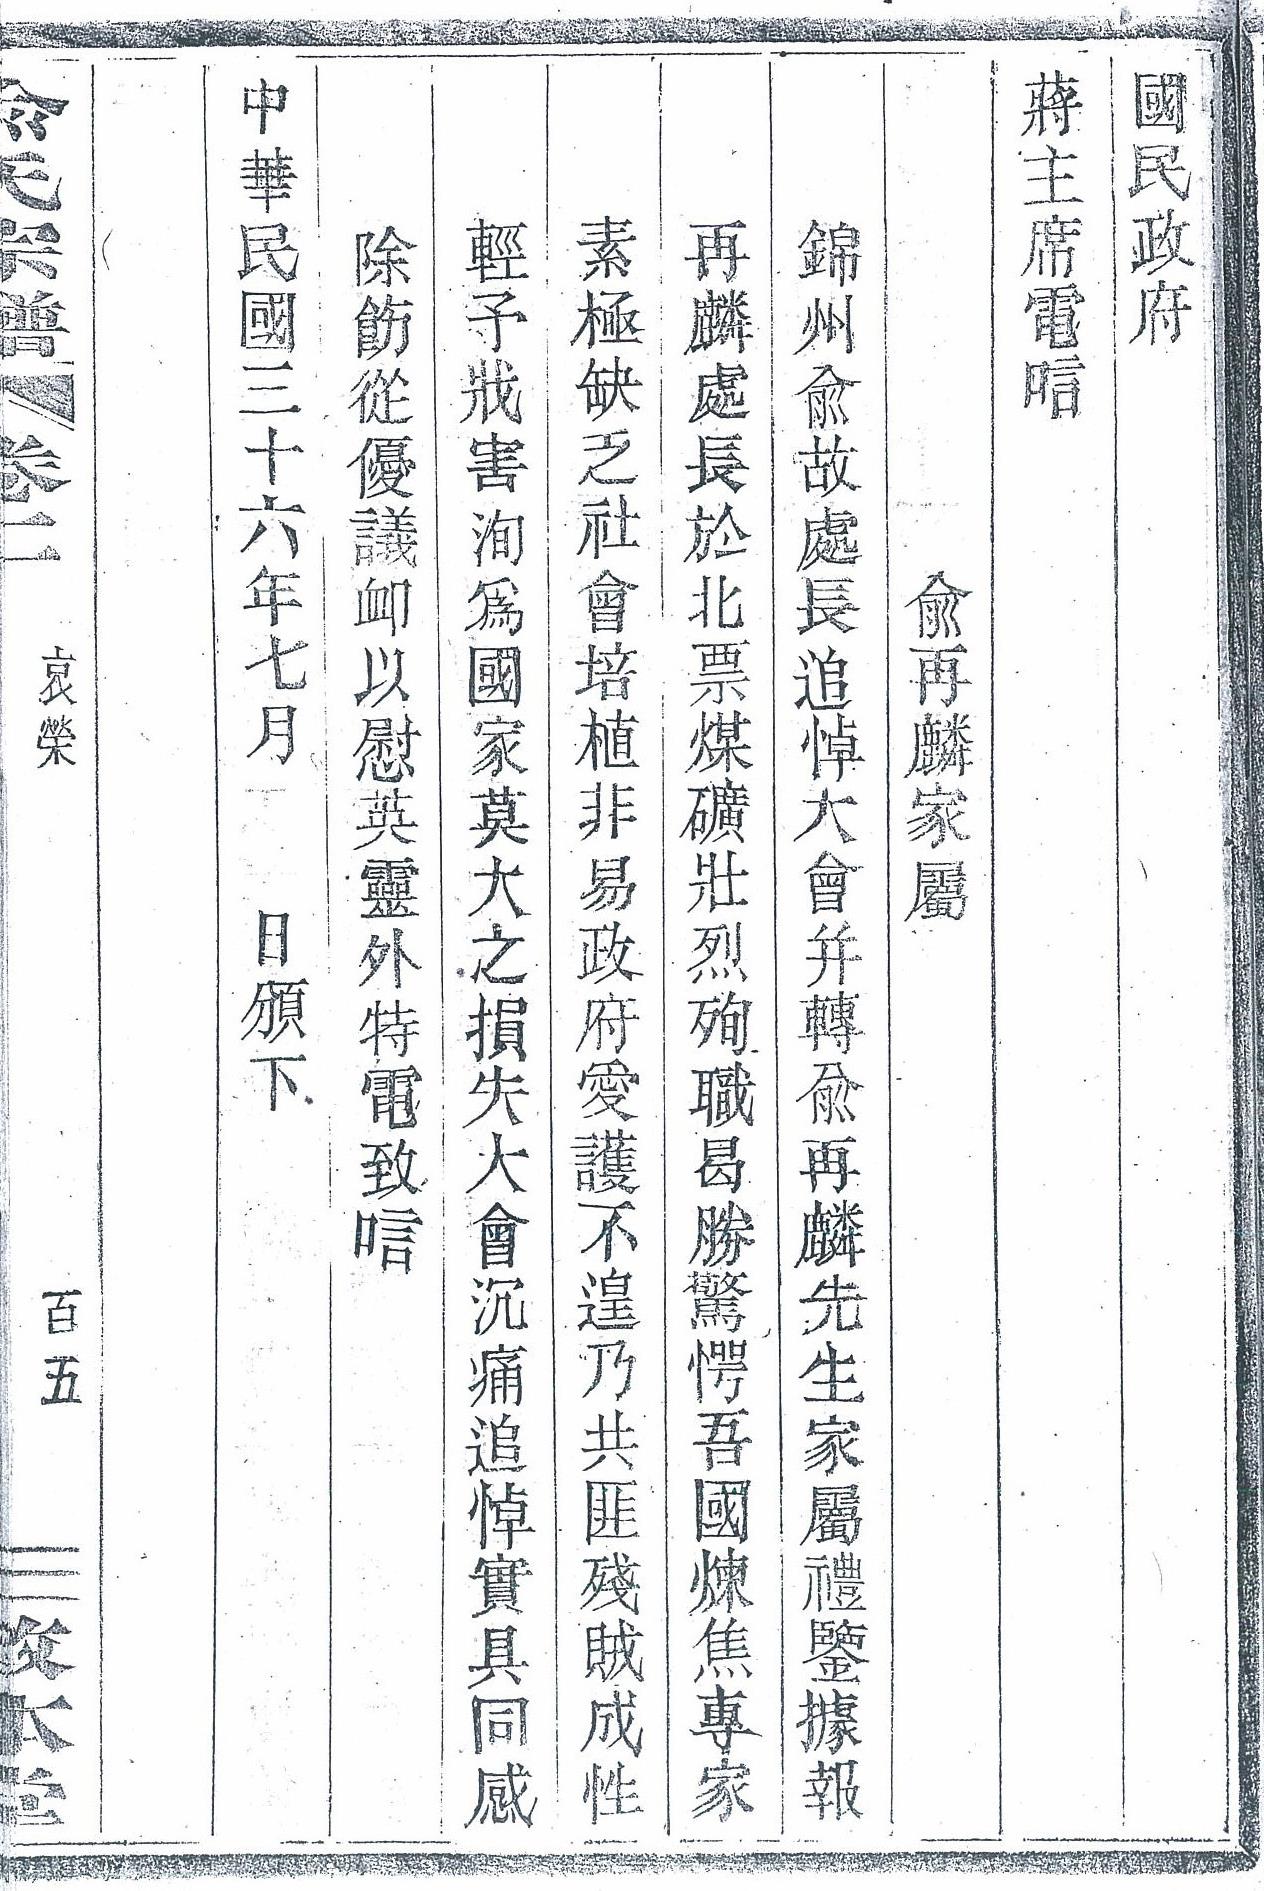 國民政府
蔣主席電唁
俞再麟家屬
錦州俞故處長追悼大會幷轉俞再麟先生家屬禮鑒據報
再麟處長於北票煤礦壯烈殉職曷勝驚愕吾國煉焦專家
素極缺乏社會培植非易政府愛護不遑乃共匪殘賊成性
輕予戕害洵爲國家莫大之損失大會沉痛追悼實具同感
除飭從優議卹以慰英靈外特電致唁
中華民國三十六年七月 日頒下
俞氏宗譜 卷二 哀榮 百五 敦本堂